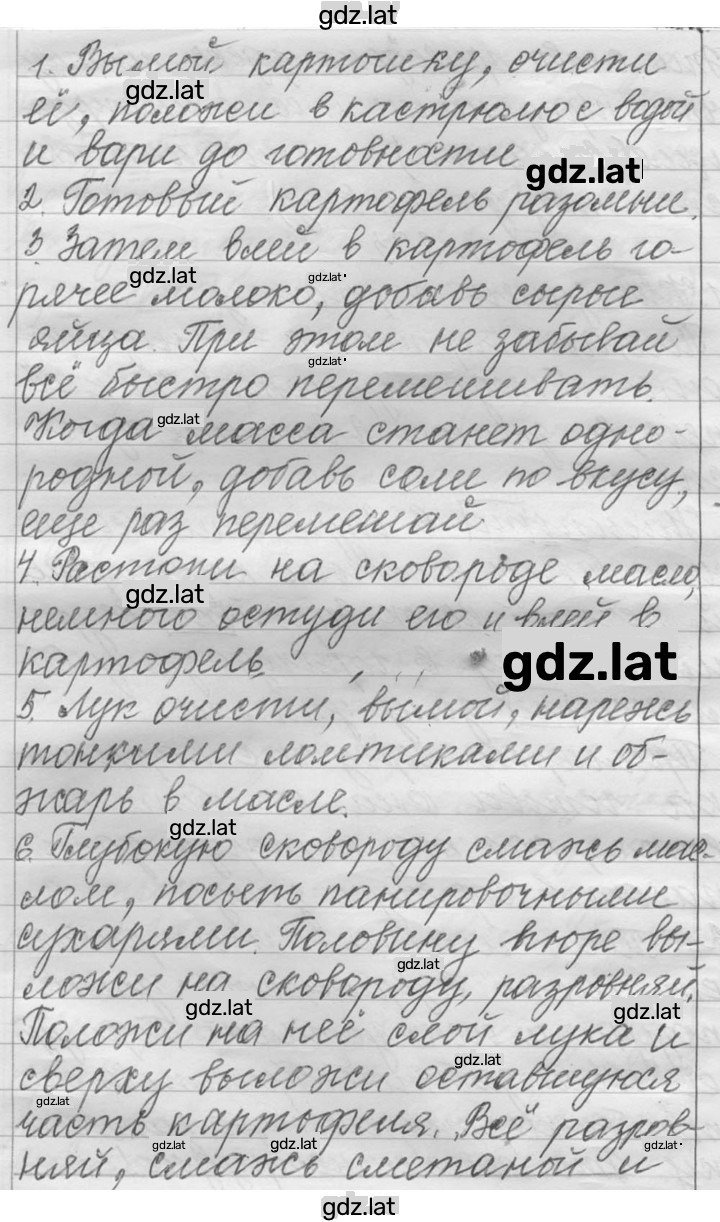 gdz.lat
1. Вымой картошку, очисти
gdz.lat
её, положи в кастрюлю с водой
и вари до готовности
gdz.lat
2. Готовый картофель разомни.
3. Затем влей в картофель го-
gdz.lat gdz.lat
рячее молоко, добавь сырые
яйца. При этом не забывай
gdz.lat
всё быстро перемешивать.
Когда gdz.lat масса станет одно-
родной, добавь соли по вкусу,
еще раз перемешай
4. Растопи на сковороде масло,
gdz.lat
немного остуди его и влей в
картофель. gdz.lat
5. Лук очисти, вымой, нарежь
тонкими ломтиками и об-
жарь в масле.
gdz.lat
6. Глубокую сковороду смажь мас-
лом, посыпь панировочными
сухарями. Половину пюре вы-
gdz.lat
ложи на сковороду, разровняй.
gdz.lat gdz.lat
Положи на неё слой лука и
gdz.lat
сверху выложи оставшуюся
gdz.lat
часть картофеля. Всё разров-
gdz.lat gdz.lat gdz.lat
няй, смажь сметаной и
gdz.lat